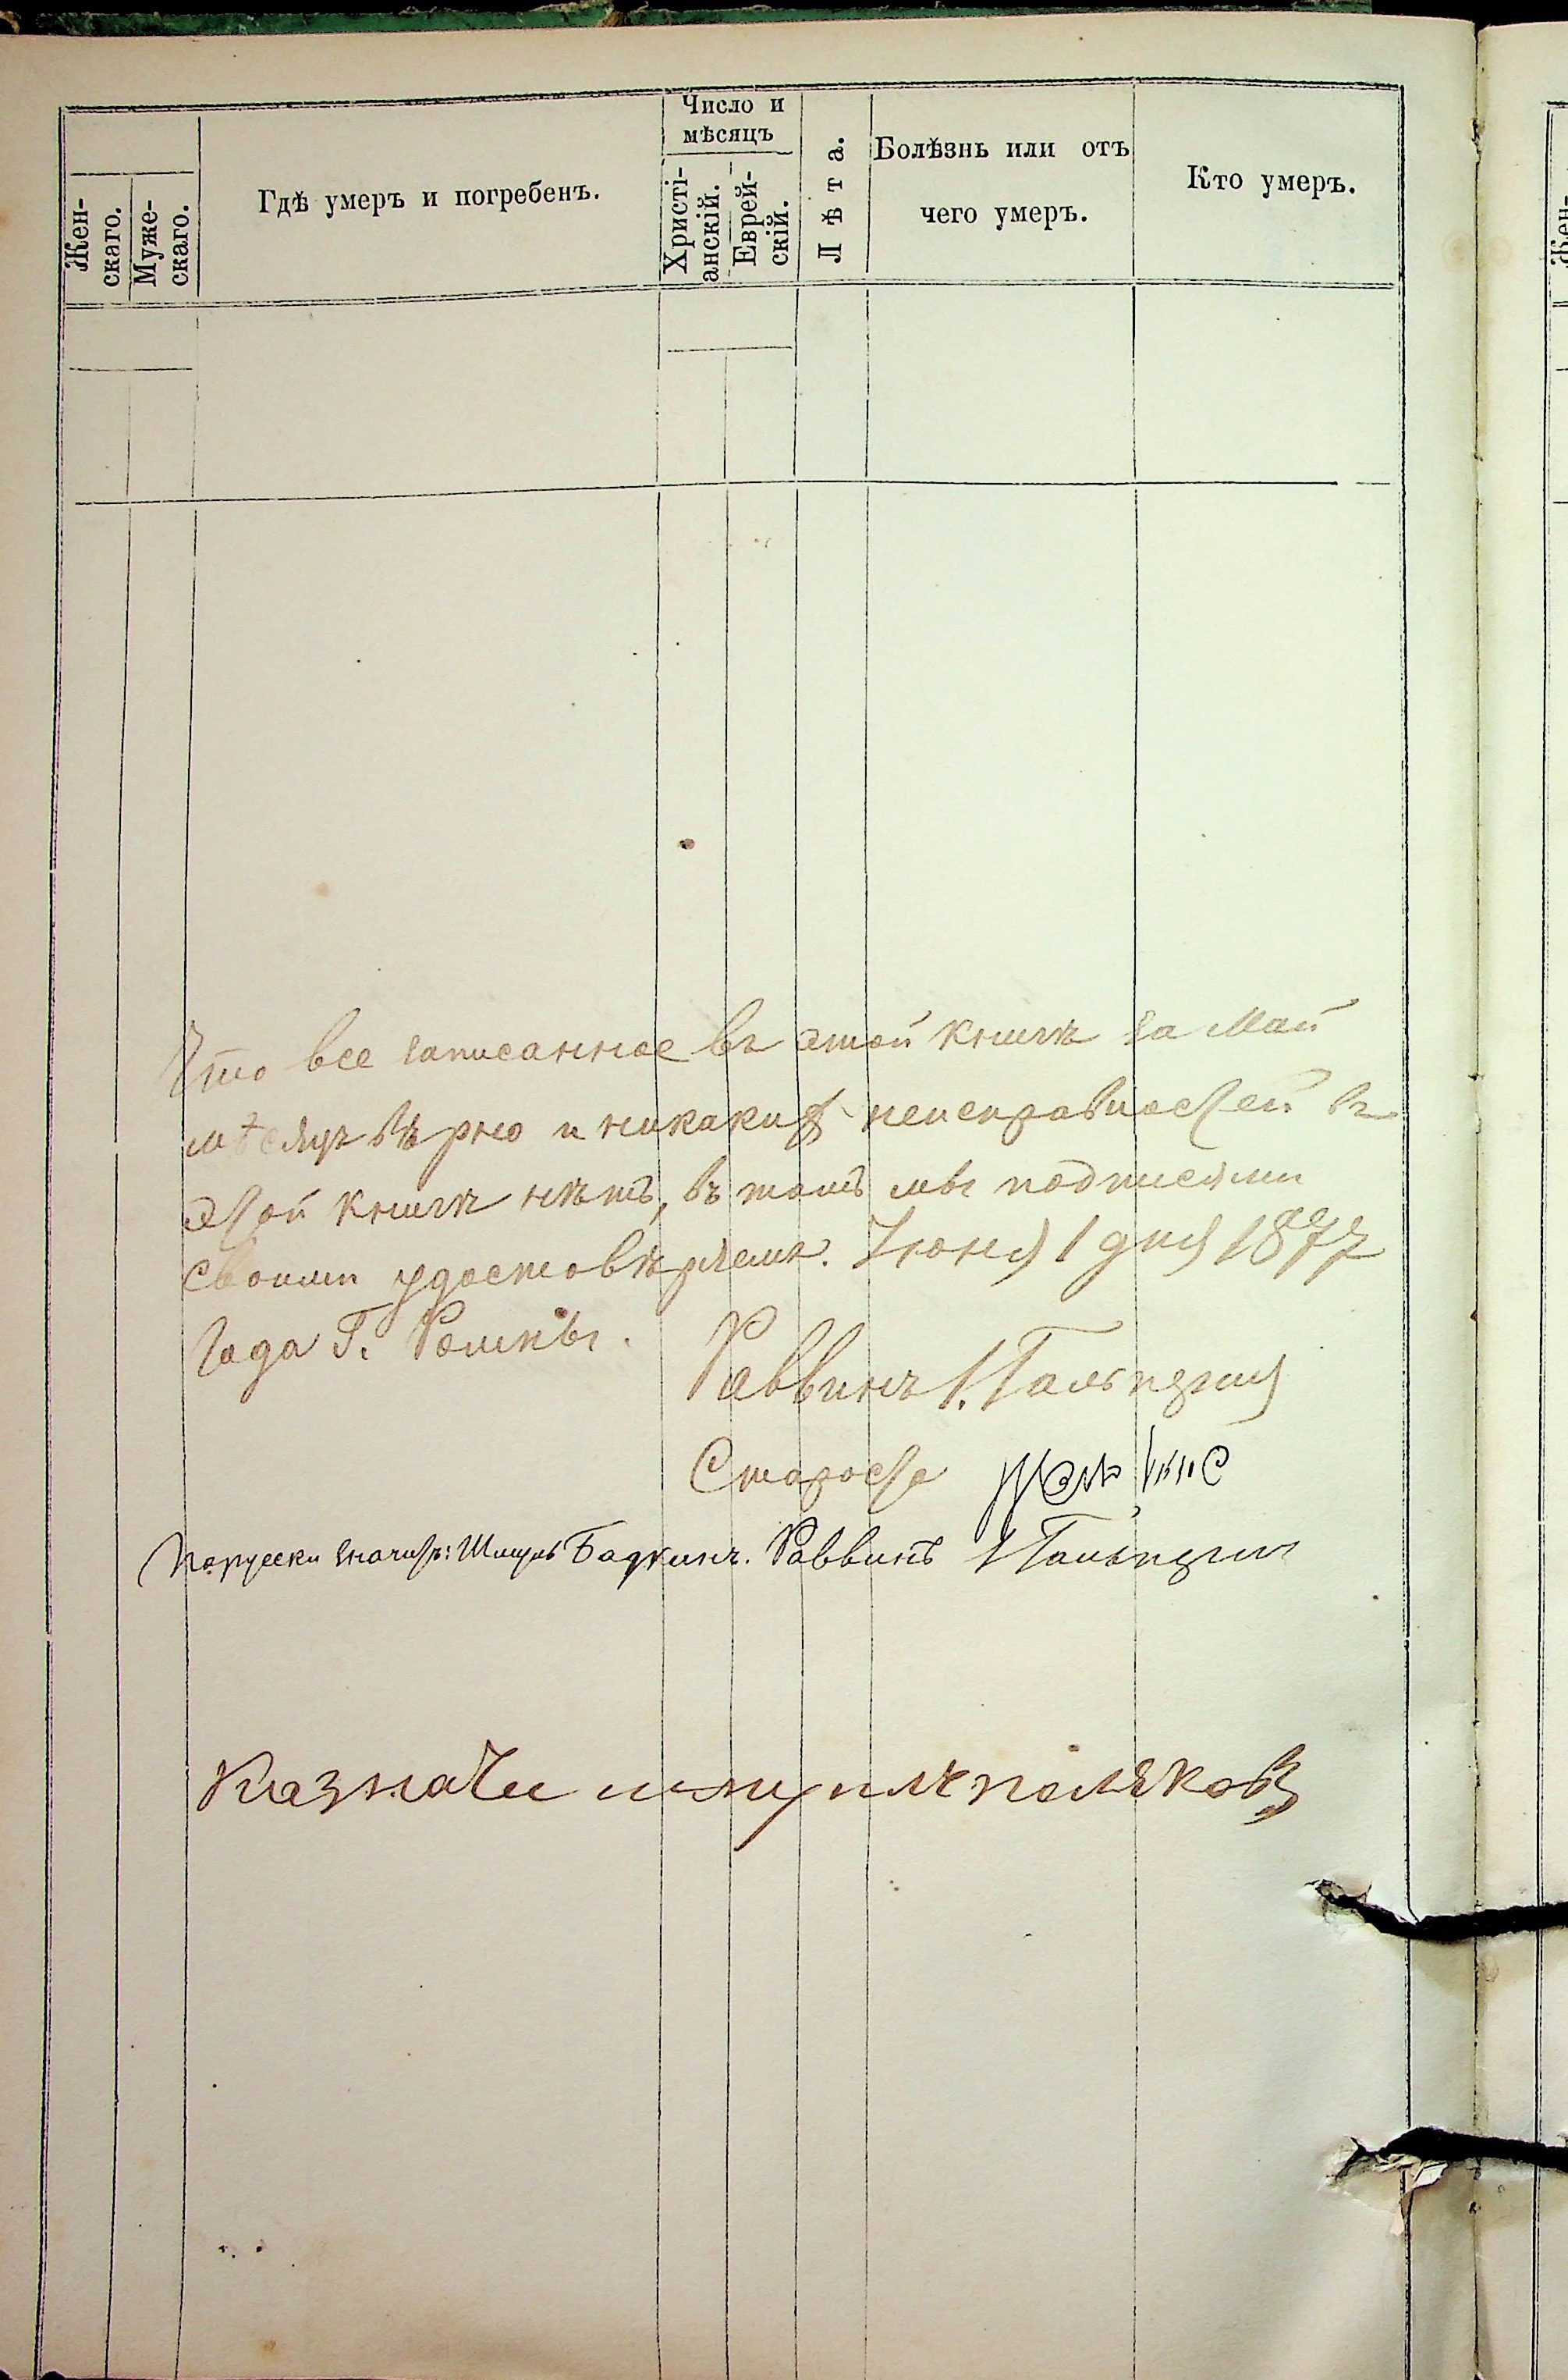 Жен-
скаго.
Муже-
скаго.
Гдѣ умеръ и погребенъ.
Число и
мѣсяцъ
Христі-
анскій.
Еврей-
скій.
Лѣта.
Болѣзнь или отъ
чего умеръ.
Кто умеръ.
Что все записанное въ этой книгѣ за Май
мѣсяцъ вѣрно и никакихъ неисправностей въ
этой книгѣ нѣтъ, въ томъ мы подписями
своими удостовѣряемъ. Іюня 1 дня 1877
года Г. Ромны.
Раввинъ І. Гальперинъ
Староста
По русски значитъ: Бадкинъ. Раввинъ І Гальперинъ
Казначеи поляковъ